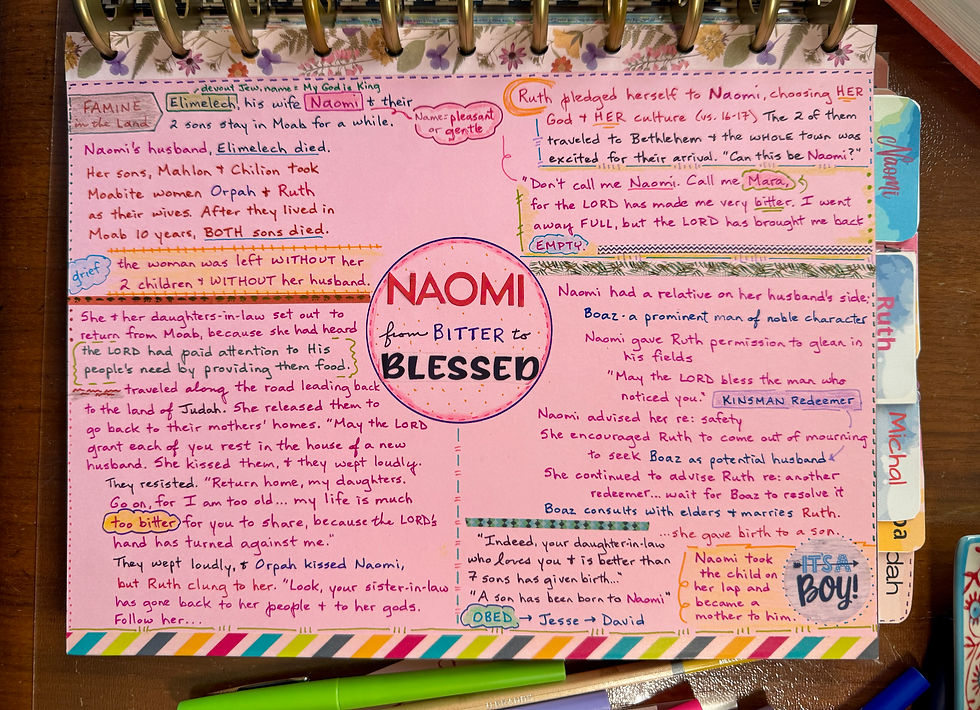 devout Jew, name = My God is King
FAMINE
in the Land
Elimelech, his wife Naomi + their
2 sons stay in Moab for a while.
Name = pleasant
or gentle
Naomi's husband, Elimelech died.
Her sons, Mahlon + Chilion took
Moabite women Orpah + Ruth
as their wives. After they lived in
Moab 10 years, BOTH sons died.
grief
the woman was left WITHOUT her
2 children + WITHOUT her husband.
She + her daughters-in-law set out to
return from Moab, because she had heard
the LORD had paid attention to His
people's need by providing them food.
traveled along the road leading back
to the land of Judah. She released them to
go back to their mothers' homes. "May the LORD
grant each of you rest in the house of a new
husband. She kissed them, + they wept loudly.
They resisted. "Return home, my daughters.
Go on, for I am too old... my life is much
too bitter for you to share, because the LORD's
hand has turned against me."
They wept loudly, + Orpah kissed Naomi,
but Ruth clung to her. "Look, your sister-in-law
has gone back to her people + to her gods.
Follow her...
NAOMI
from BITTER to
BLESSED
Ruth pledged herself to Naomi, choosing HER
God + HER culture (vs. 16-17) The 2 of them
traveled to Bethlehem + the whole town was
excited for their arrival. "Can this be Naomi?"
"Don't call me Naomi. Call me Mara,
for the LORD has made me very bitter. I went
away FULL, but the LORD has brought me back
EMPTY."
Naomi had a relative on her husband's side,
Boaz - a prominent man of noble character
Naomi gave Ruth permission to glean in
his fields
"May the LORD bless the man who
noticed you." KINSMAN Redeemer
Naomi advised her re: safety
She encouraged Ruth to come out of mourning
to seek Boaz as potential husband
She continued to advise Ruth re: another
redeemer... wait for Boaz to resolve it
Boaz consults with elders + marries Ruth.
...she gave birth to a son.
"Indeed, your daughter-in-law
who loves you + is better than
7 sons has given birth..."
"A son has been born to Naomi"
OBED → Jesse → David
Naomi took
the child on
her lap and
became a
mother to him.
IT'S A
BOY!
Naomi
Ruth
Michal
dah